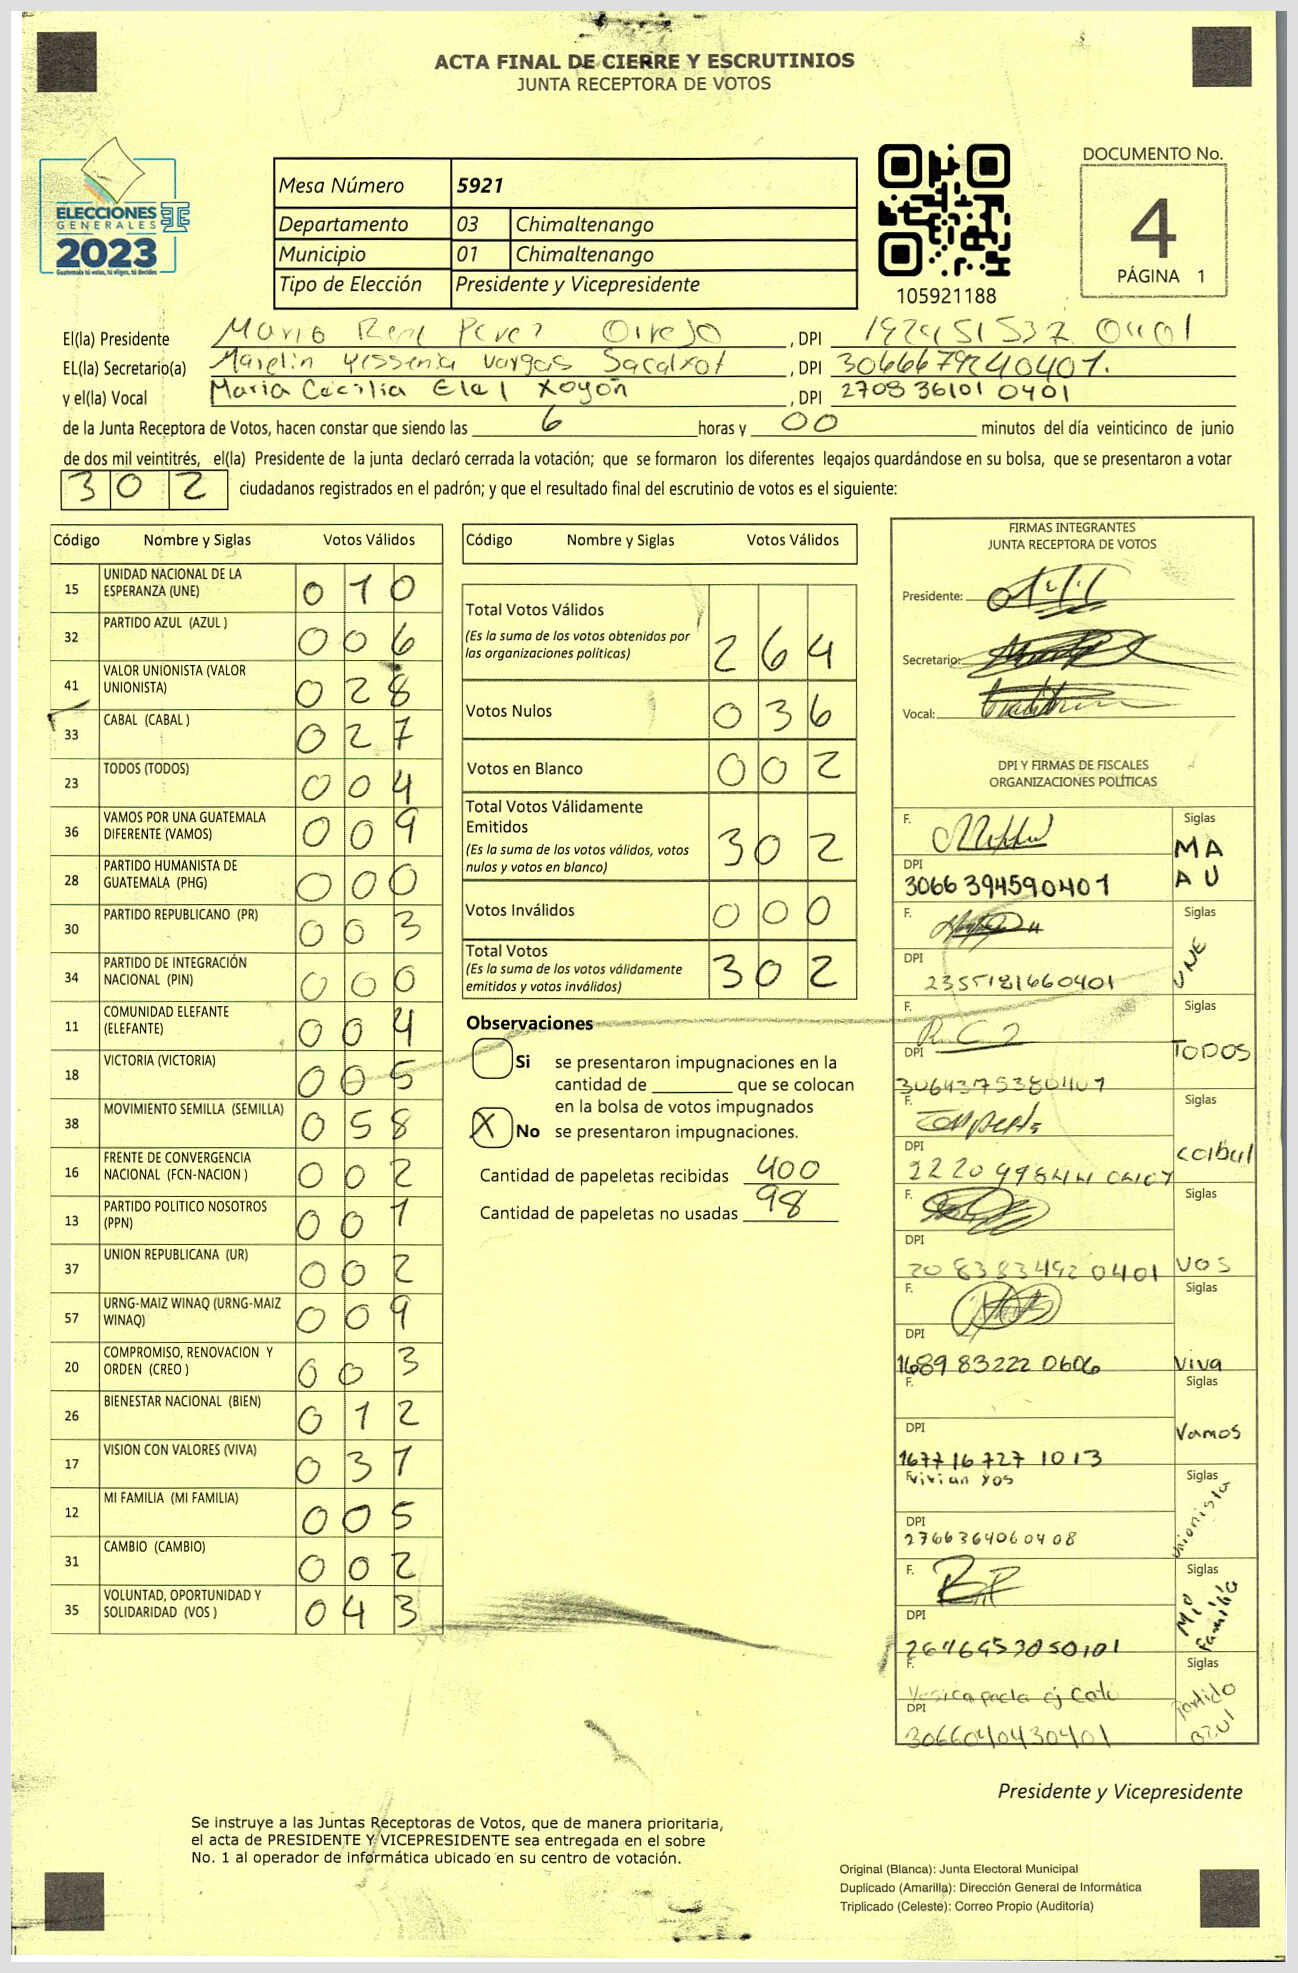 ACTA FINAL DE CIERRE Y ESCRUTINIOS
JUNTA RECEPTORA DE VOTOS
ELECCIONES
GENERALES
2023
Guatemala tú votas, tú eliges, tú decides
Mesa Número 5921
Departamento 03 Chimaltenango
Municipio 01 Chimaltenango
Tipo de Elección Presidente y Vicepresidente
105921188
DOCUMENTO No.
4
PÁGINA 1
El(la) Presidente Mario , DPI
EL(la) Secretario(a) Marelin Yessenia Vargas , DPI 3066679240401.
y el(la) Vocal Maria Cecilia Elel Xoyón , DPI 2708 36101 0401
de la Junta Receptora de Votos, hacen constar que siendo las 6 horas y 00 minutos del día veinticinco de junio
de dos mil veintitrés, el(la) Presidente de la junta declaró cerrada la votación; que se formaron los diferentes legajos guardándose en su bolsa, que se presentaron a votar
302 ciudadanos registrados en el padrón; y que el resultado final del escrutinio de votos es el siguiente:
Código Nombre y Siglas Votos Válidos
15 UNIDAD NACIONAL DE LA ESPERANZA (UNE) 010
32 PARTIDO AZUL (AZUL ) 006
41 VALOR UNIONISTA (VALOR UNIONISTA) 028
33 CABAL (CABAL ) 027
23 TODOS (TODOS) 004
36 VAMOS POR UNA GUATEMALA DIFERENTE (VAMOS) 009
28 PARTIDO HUMANISTA DE GUATEMALA (PHG) 000
30 PARTIDO REPUBLICANO (PR) 003
34 PARTIDO DE INTEGRACIÓN NACIONAL (PIN) 000
11 COMUNIDAD ELEFANTE (ELEFANTE) 004
18 VICTORIA (VICTORIA) 005
38 MOVIMIENTO SEMILLA (SEMILLA) 058
16 FRENTE DE CONVERGENCIA NACIONAL (FCN-NACION ) 002
13 PARTIDO POLITICO NOSOTROS (PPN) 001
37 UNION REPUBLICANA (UR) 002
57 URNG-MAIZ WINAQ (URNG-MAIZ WINAQ) 009
20 COMPROMISO, RENOVACION Y ORDEN (CREO ) 003
26 BIENESTAR NACIONAL (BIEN) 012
17 VISION CON VALORES (VIVA) 031
12 MI FAMILIA (MI FAMILIA) 005
31 CAMBIO (CAMBIO) 002
35 VOLUNTAD, OPORTUNIDAD Y SOLIDARIDAD (VOS ) 043
Código Nombre y Siglas Votos Válidos
Total Votos Válidos 264
(Es la suma de los votos obtenidos por
las organizaciones políticas)
Votos Nulos 036
Votos en Blanco 002
Total Votos Válidamente
Emitidos 302
(Es la suma de los votos válidos, votos
nulos y votos en blanco)
Votos Inválidos 000
Total Votos 302
(Es la suma de los votos válidamente
emitidos y votos inválidos)
Observaciones
Si se presentaron impugnaciones en la
cantidad de ________ que se colocan
en la bolsa de votos impugnados
X No se presentaron impugnaciones.
Cantidad de papeletas recibidas 400
Cantidad de papeletas no usadas 98
FIRMAS INTEGRANTES
JUNTA RECEPTORA DE VOTOS
Presidente:
Secretario:
Vocal:
DPI Y FIRMAS DE FISCALES
ORGANIZACIONES POLÍTICAS
F. Siglas
MA
AU
DPI
3066 394590401
F. Siglas
UNE
DPI
2355181660401
F. Siglas
TODOS
DPI
3064375380401
F. Siglas
cabal
DPI
F. Siglas
VOS
DPI
20 8383492 0401
F. Siglas
viva
DPI
1689 83222 0606
F. Siglas
Vamos
DPI
167716727 1013
F. Vivian Xos Siglas
unionista
DPI
2766364060408
F. Siglas
Mi
Familia
DPI
2676953050101
F. Siglas
Partido
azul
DPI
3066040430401
Presidente y Vicepresidente
Se instruye a las Juntas Receptoras de Votos, que de manera prioritaria,
el acta de PRESIDENTE Y VICEPRESIDENTE sea entregada en el sobre
No. 1 al operador de informática ubicado en su centro de votación.
Original (Blanca): Junta Electoral Municipal
Duplicado (Amarilla): Dirección General de Informática
Triplicado (Celeste): Correo Propio (Auditoria)